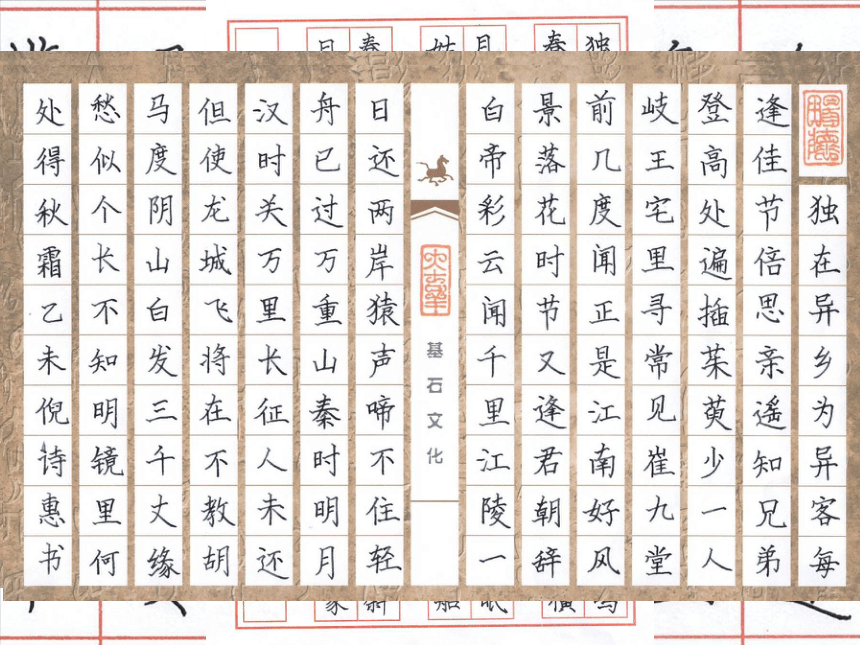 独在异乡为异客每
逢佳节倍思亲遥知兄弟
登高处遍插茱萸少一人
岐王宅里寻常见崔九堂
前几度闻正是江南好风
景落花时节又逢君朝辞
白帝彩云闻千里江陵一
基石文化
日还两岸猿声啼不住轻
舟已过万重山秦时明月
汉时关万里长征人未还
但使龙城飞将在不教胡
马度阴山白发三千丈缘
愁似个长不知明镜里何
处得秋霜乙未倪诗惠书